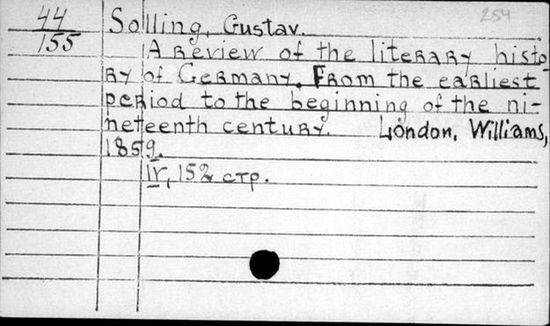 254
44
155
Solling, Gustav.
A review of the literary histo-
ry of Germany. From the earliest
period to the beginning of the ni-
neteenth century. London, Williams,
1859.
IV, 152 стр.